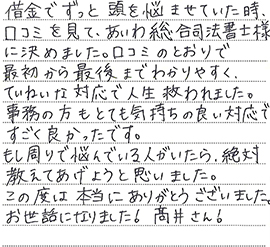 借金でずっと頭を悩ませていた時、
口コミを見て、あいわ総合司法書士様
に決めました。口コミのとおりで
最初から最後までわかりやすく、
ていねいな対応で人生救われました。
事務の方もとても気持ちの良い対応で
すごく良かったです。
もし周りで悩んでいる人がいたら、絶対
教えてあげようと思いました。
この度は本当にありがとうございました。
お世話になりました！髙井さん！